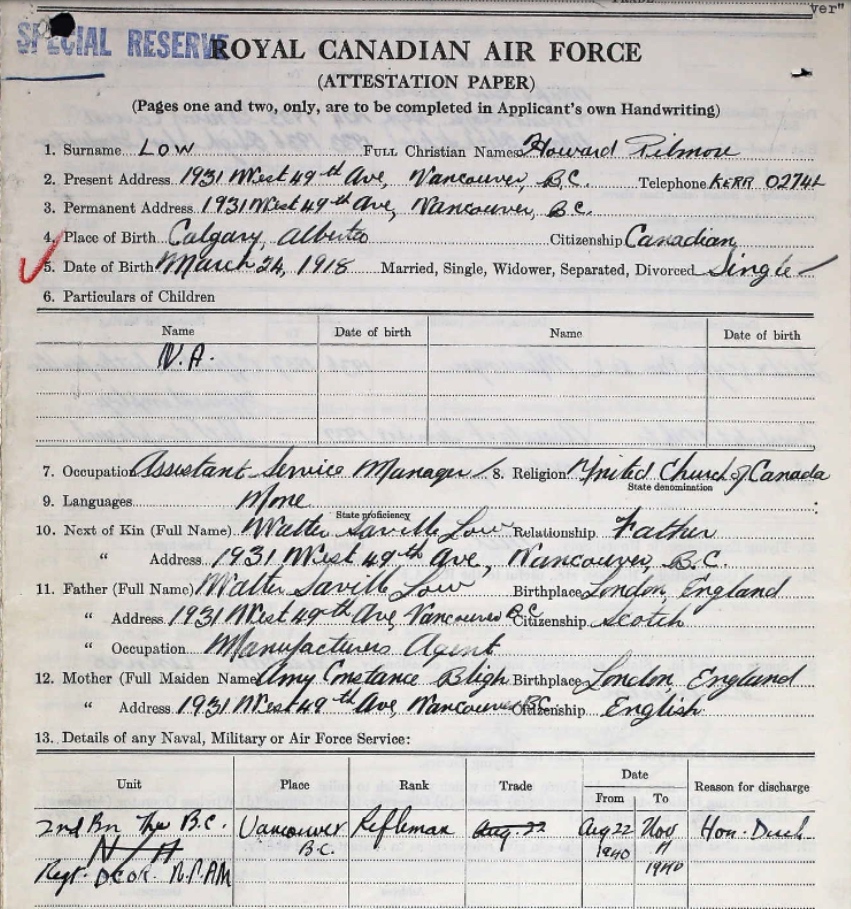 ver"
SPECIAL RESERVE ROYAL CANADIAN AIR FORCE
(ATTESTATION PAPER)
(Pages one and two, only, are to be completed in Applicant's own Handwriting)
1. Surname LOW FULL Christian Names Howard
2. Present Address 1931 West 49th Ave, Vancouver, B.C. Telephone KERR 0274L
3. Permanent Address 1931 West 49th Ave, Vancouver, B.C.
4. Place of Birth Calgary, Alberta Citizenship Canadian
5. Date of Birth March 24, 1918 Married, Single, Widower, Separated, Divorced Single
6. Particulars of Children
Name Date of birth Name Date of birth
N.A.
7. Occupation Assistant Service Manager 8. Religion United Church of Canada
State denomination
9. Languages None
State proficiency
10. Next of Kin (Full Name) Walter Saville Low Relationship Father
" Address 1931 West 49th Ave, Vancouver, B.C.
11. Father (Full Name) Walter Saville Low Birthplace London, England
" Address 1931 West 49th Ave, Vancouver B.C. Citizenship Scotch
" Occupation Manufacturers Agent
12. Mother (Full Maiden Name) Amy Constance Bligh Birthplace London, England
" Address 1931 West 49th Ave, Vancouver B.C. Citizenship English
13. Details of any Naval, Military or Air Force Service:
Unit Place Rank Trade Date Reason for discharge
From To
2nd Bn, The B.C. Vancouver Rifleman Aug. 22 Aug 22 Nov Hon. Disch
B.C. 1940 11
Regt. DCOR. N.P.A.M 1940